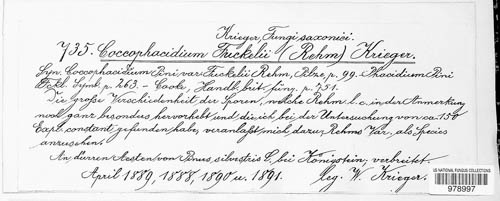 Krieger, Fungi saxonici.
735. Coccophacidium Fuckelii (Rehm) Krieger.
Syn. Coccophacidium Pini, var. Fuckelii Rehm, Pilze, p. 99. Phacidium Pini
Fckl. Symb. p. 263. – Cooke, Handb. brit. fung. p. 751.
Die große Verschiedenheit der Sporen, welche Rehm l. c. in der Anmerkung
wohl ganz besonders hervorhebt und die ich bei der Untersuchung von ca. 150
Expl. constant gefunden habe, veranlaßt mich dazu, Rehms Var. als Species
anzusehen.
An dürren Aesten von Pinus silvestris L. bei Königstein, verbreitet.
April 1889, 1888, 1890 u. 1891. leg. W. Krieger.
US NATIONAL FUNGUS COLLECTIONS
978997